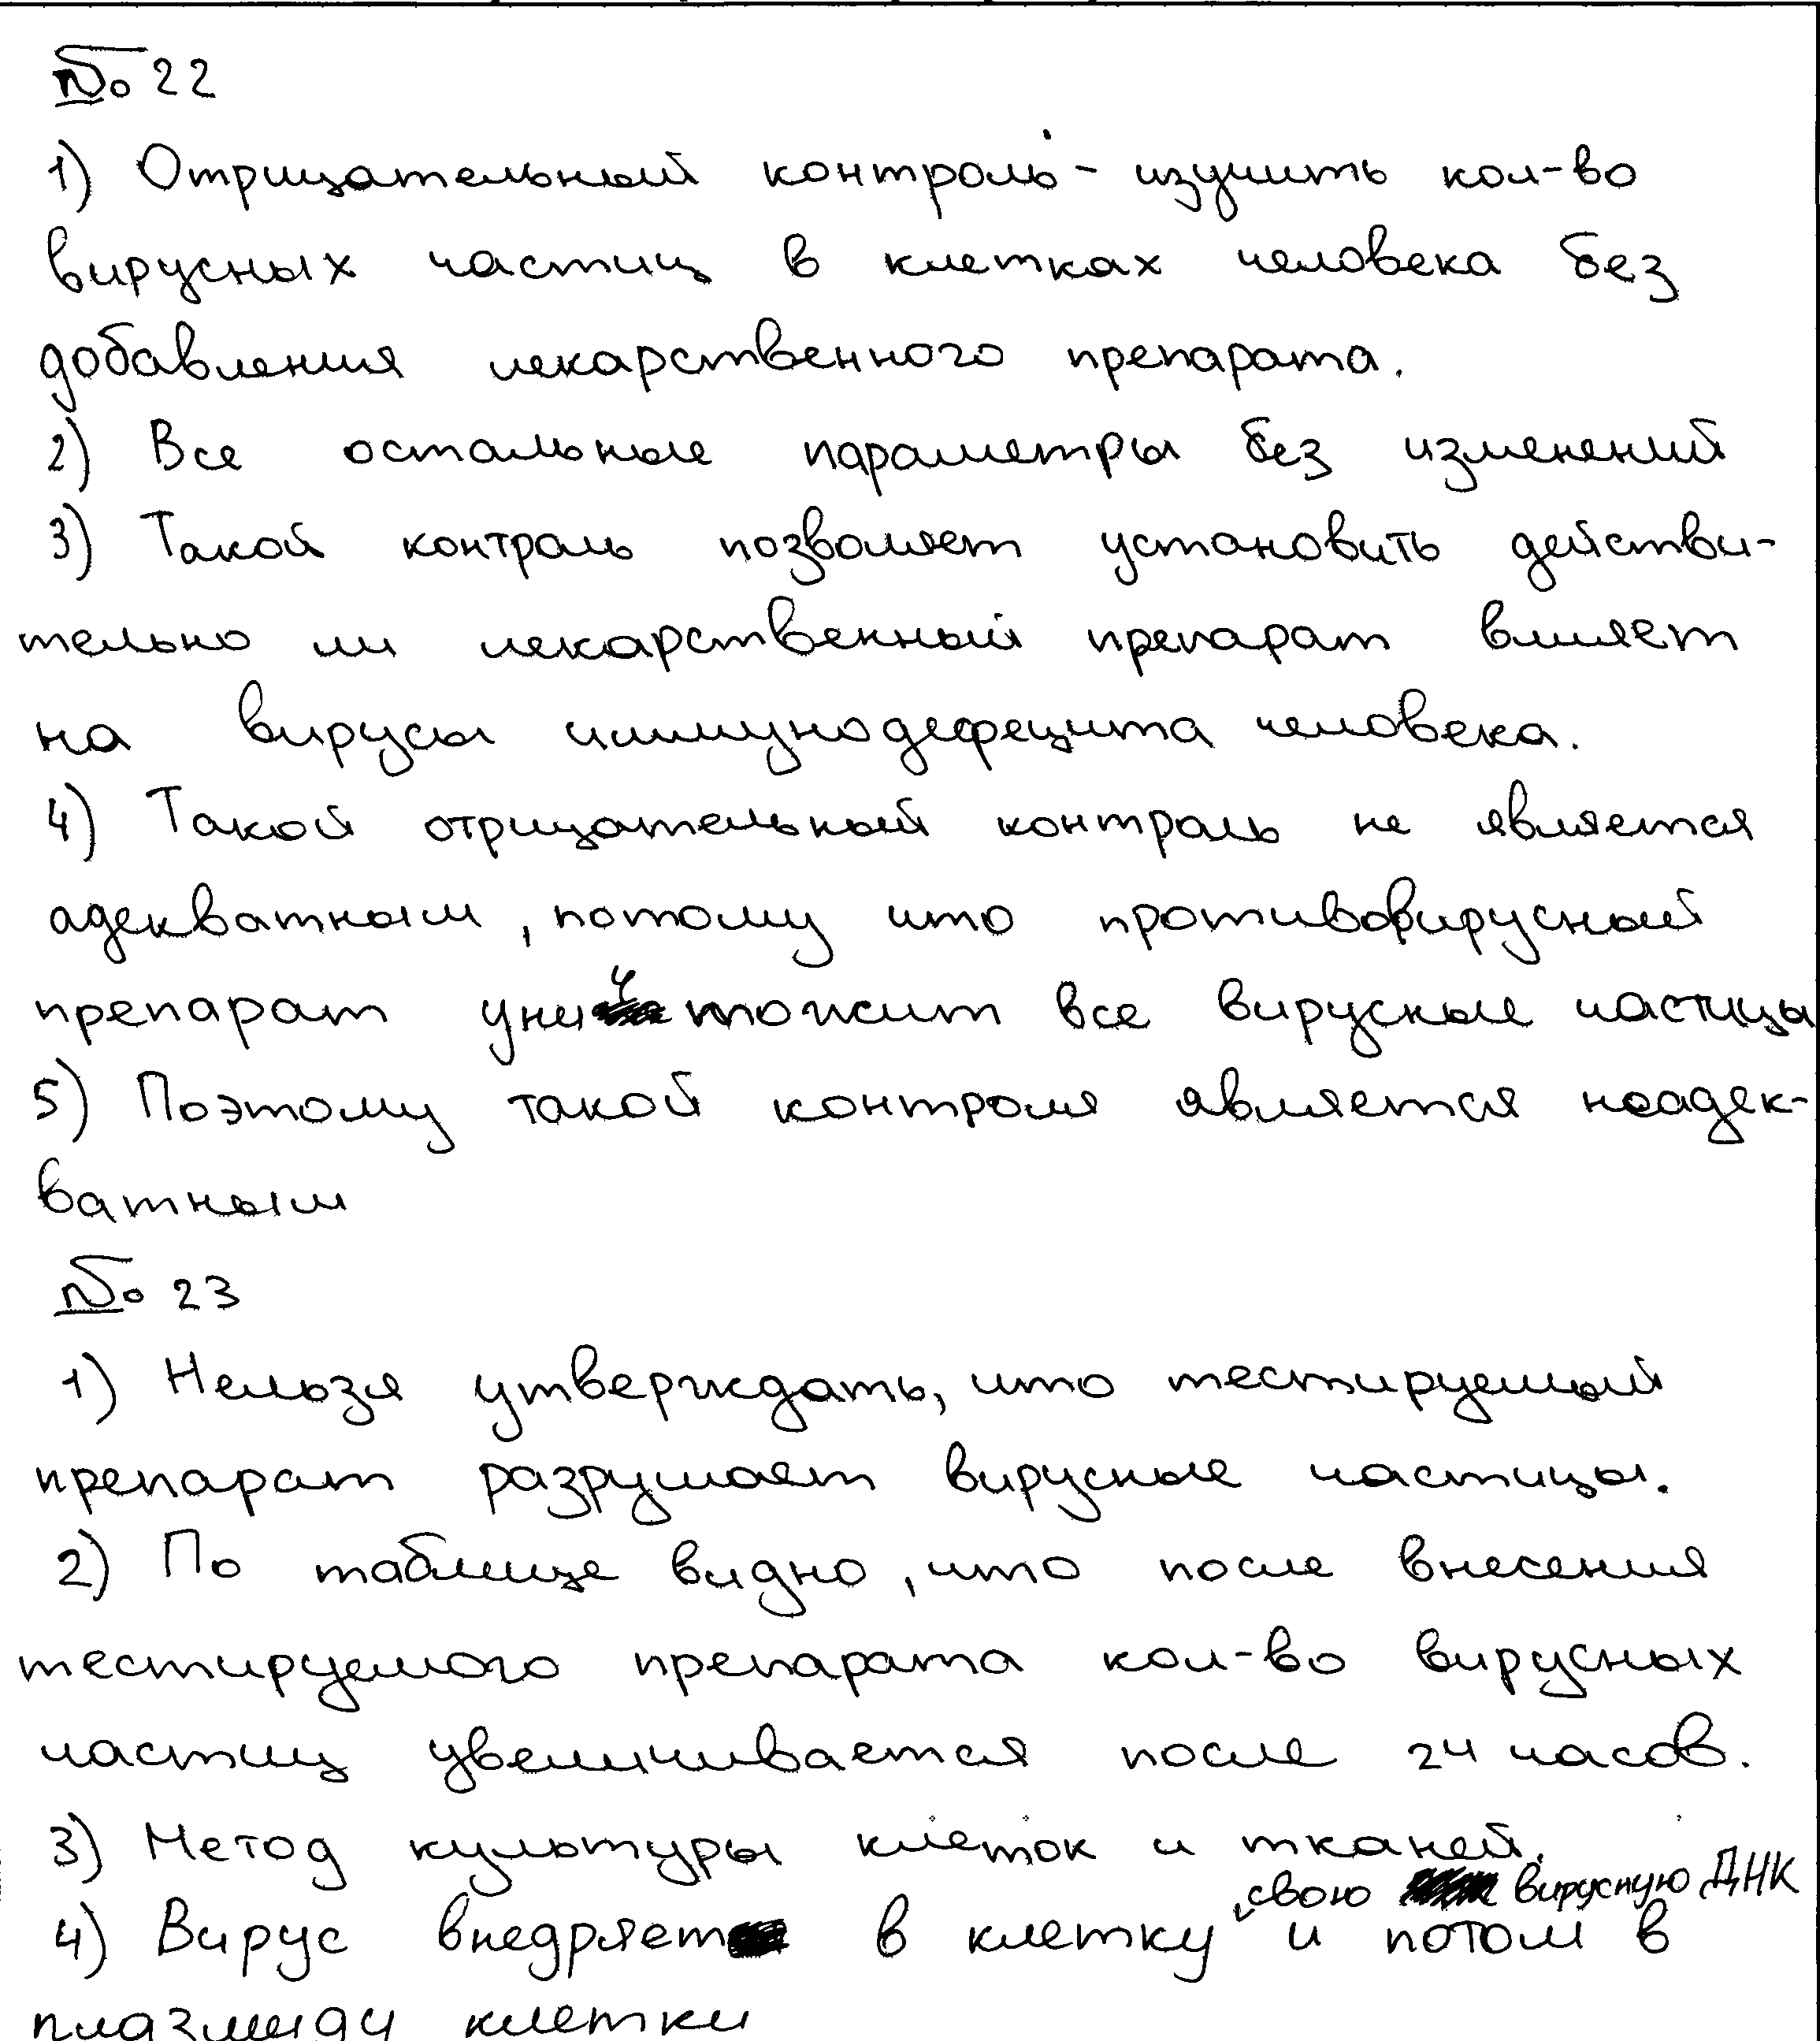 № 22
1) Отрицательный контроль - изучить кол-во
вирусных частиц в клетках человека без
добавления лекарственного препарата.
2) Все остальные параметры без изменений
3) Такой контроль позволяет установить действи-
тельно ли лекарственный препарат влияет
на вирусы иммунодефецита человека.
4) Такой отрицательный контроль не является
адекватным, потому что противовирусный
препарат уничтожит все вирусные частицы
5) Поэтому такой контроля является неадек-
ватным
№ 23
1) Нельзя утверждать, что тестируемый
препарат разрушает вирусные частицы.
2) По таблице видно, что после внесения
тестируемого препарата кол-во вирусных
частиц увеличивается после 24 часов.
3) Метод культуры клеток и тканей.
4) Вирус внедряет в клетку свою вирусную ДНК и потом в
плазмиду клетки